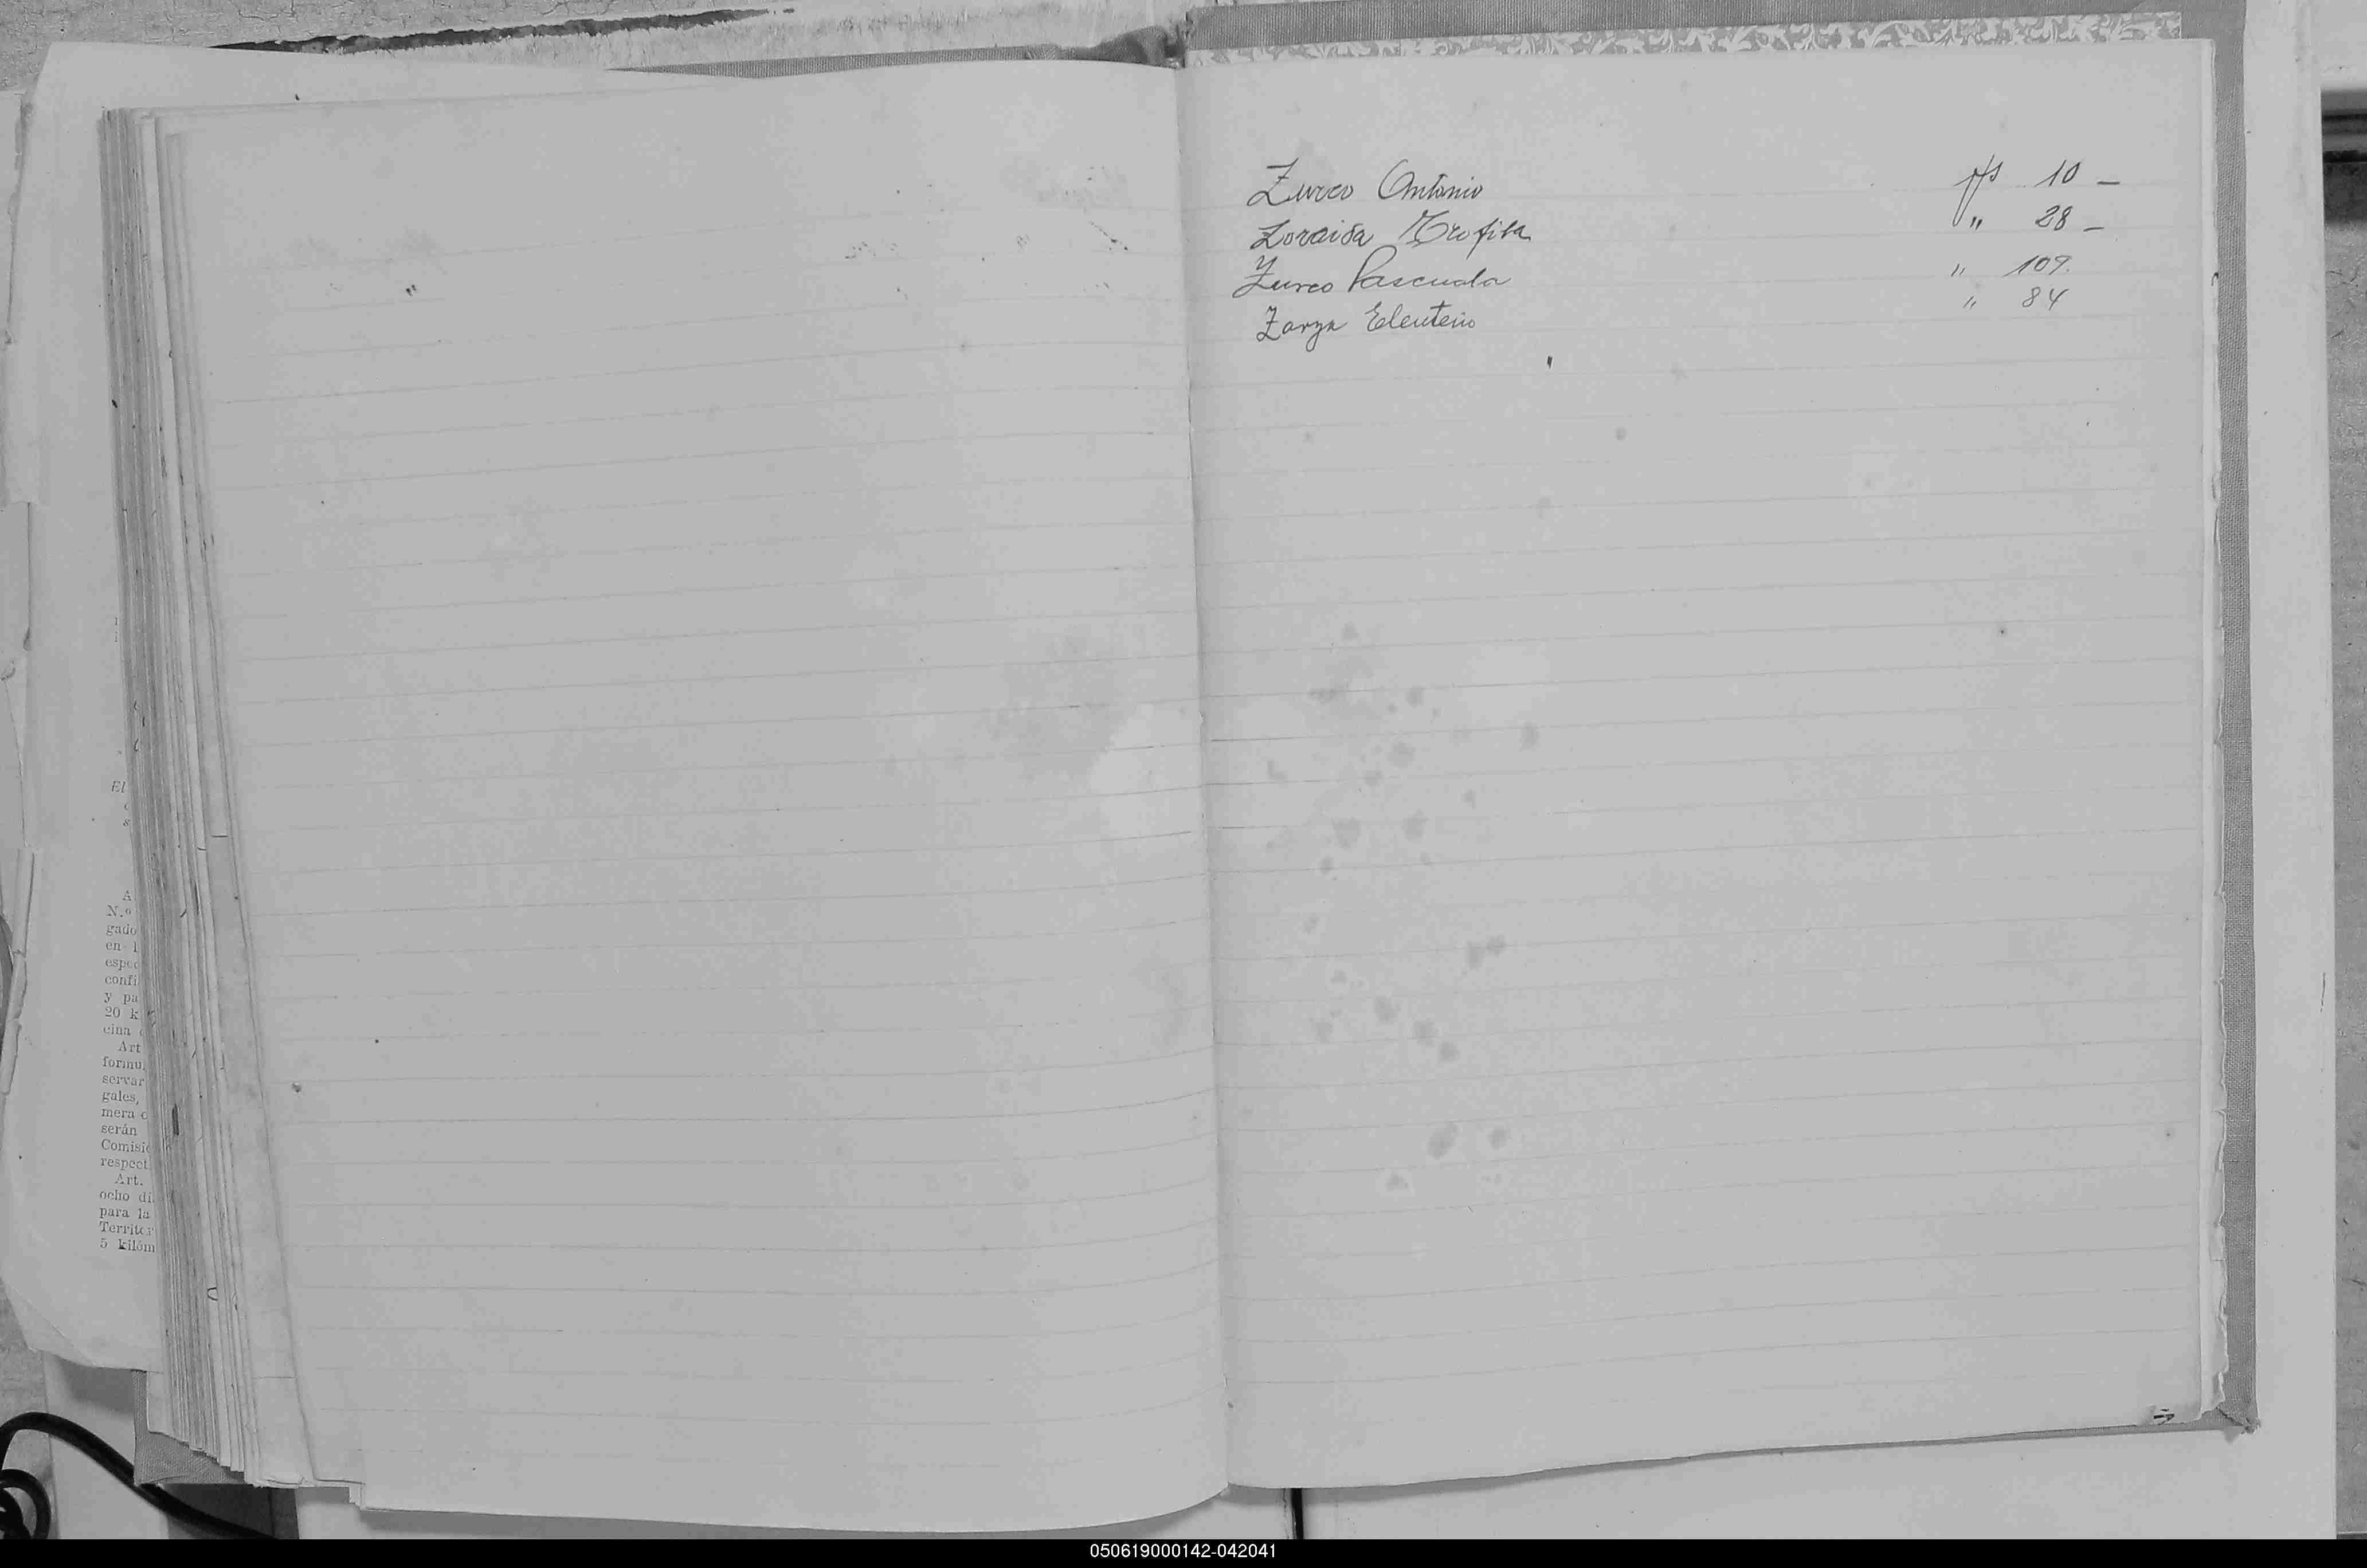 El
A
N.º
gado
en l
espec
confi
y pa
20 k
cina
Art
formu
servar
gales,
mera c
serán
Comisio
respect
Art.
ocho di
para la
Territor
5 kilóm
Zurco Antonio pfs 10 —
Zoraida Teofila " 28 —
Zurco Pascuala " 109.
Zarza Eleuterio " 84
050619000142-042041